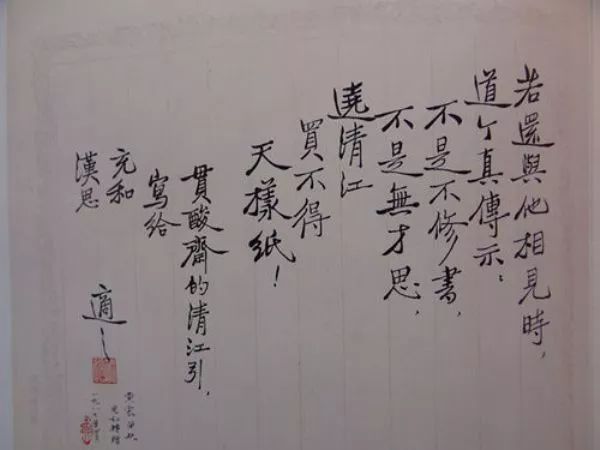 若還與他相見時，
道个真傳示：
不是不修書，
不是無才思，
遶清江
買不得
天樣紙！
貫酸齋的清江引，
寫給
充和
漢思
適之